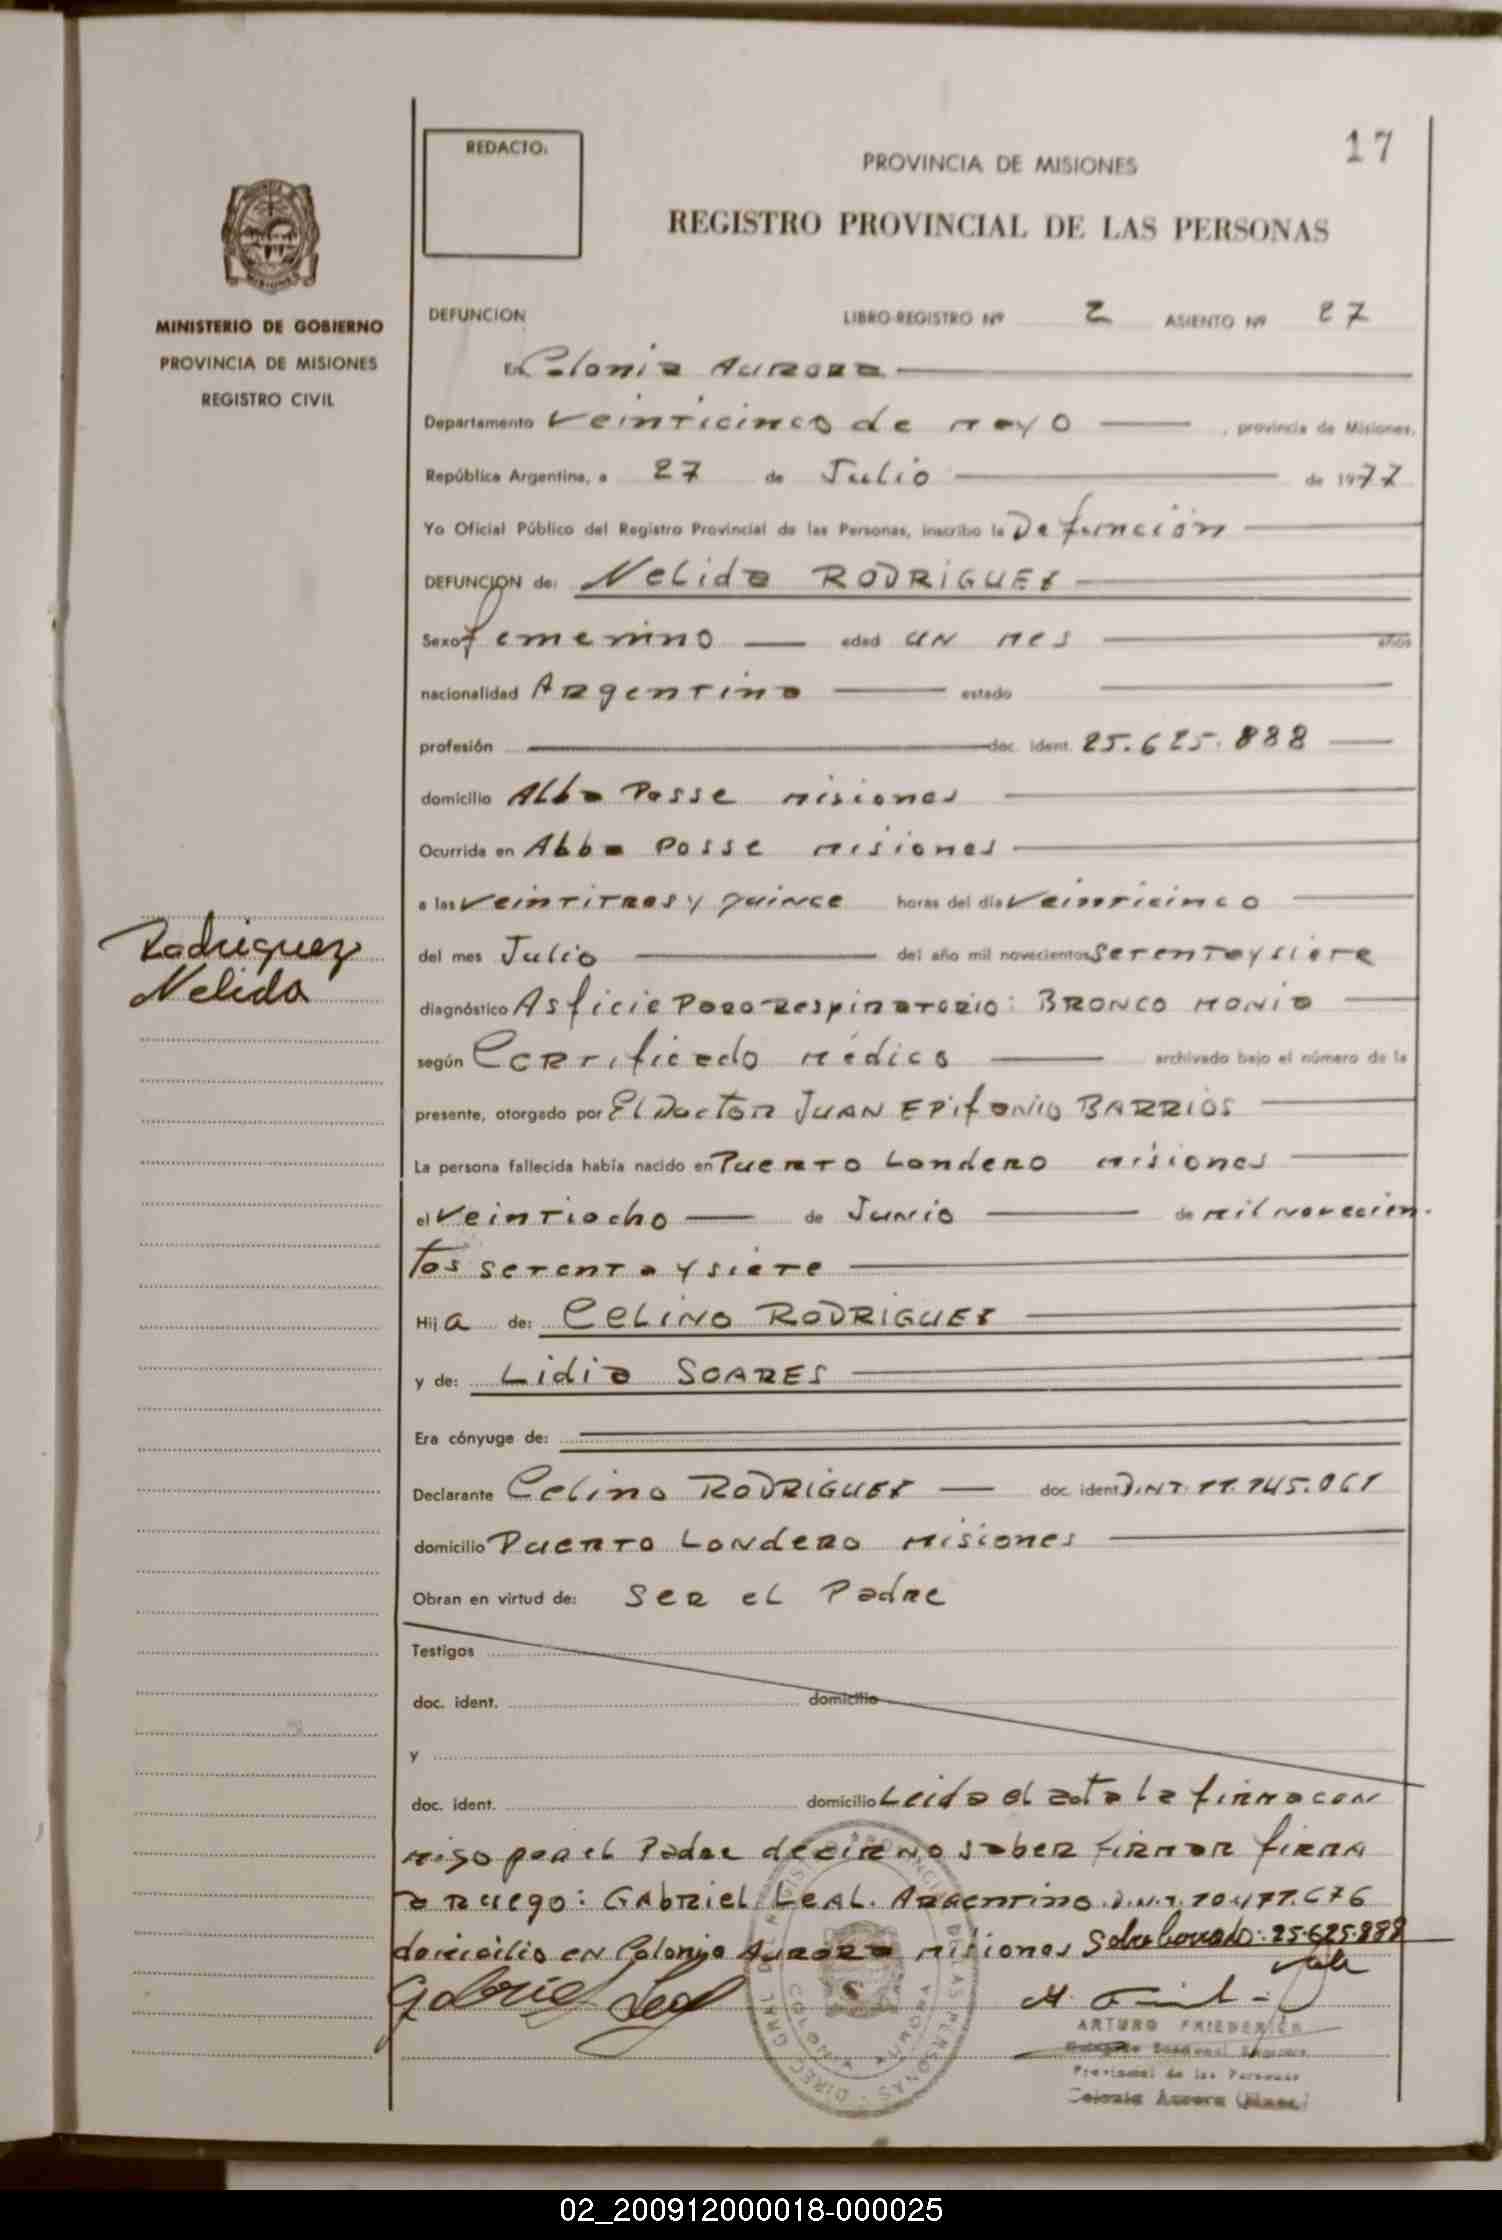 17
REDACTO:
PROVINCIA DE MISIONES
REGISTRO PROVINCIAL DE LAS PERSONAS
MINISTERIO DE GOBIERNO
PROVINCIA DE MISIONES
REGISTRO CIVIL
DEFUNCION LIBRO-REGISTRO Nº 2 ASIENTO Nº 27
En Colonia Aurora
Departamento Veinticinco de mayo , provincia de Misiones,
República Argentina, a 27 de Julio de 1977
Yo Oficial Público del Registro Provincial de las Personas, inscribo la Defunción
DEFUNCION de: Nelida RODRIGUEZ
Sexo femenino edad un mes años
nacionalidad Argentina estado
profesión doc. ident. 25.625.888
domicilio Alba Posse misiones
Ocurrida en Abba Posse misiones
a las veintitres y quince horas del día veinticinco
del mes Julio del año mil novecientos setenta y siete
Rodriguez
Nelida
diagnóstico Asficie Paro-respiratorio: BRONCO MONIA
según Certificado médico archivado bajo el número de la
presente, otorgado por El Doctor JUAN EPIFANIO BARRIOS
La persona fallecida había nacido en Puerto Londero misiones
el veintiocho de Junio de mil novecien
tos setenta y siete
Hija de: CELINO RODRIGUEZ
y de: Lidia SOARES
Era cónyuge de:
Declarante Celino RODRIGUEZ doc. ident. D.N.I. 11.745.061
domicilio Puerto Londero misiones
Obran en virtud de: ser el Padre
Testigos
doc. ident. domicilio
y
doc. ident. domicilio Leida el acta la firma con
migo por el Padre decir no saber firmar firma
a ruego: GABRIEL LEAL. Argentino D.N.I. 10.477.676
domicilio en Colonia Aurora misiones Sobre borrado: 25.625.888
Vale
Gabriel Leal
ARTURO FRIEDERICH
Provincial de las Personas
Colonia Aurora (Mnes.)
DIREC. GRAL. DEL REGISTRO PROVINCIAL DE LAS PERSONAS
COLONIA AURORA
02_200912000018-000025